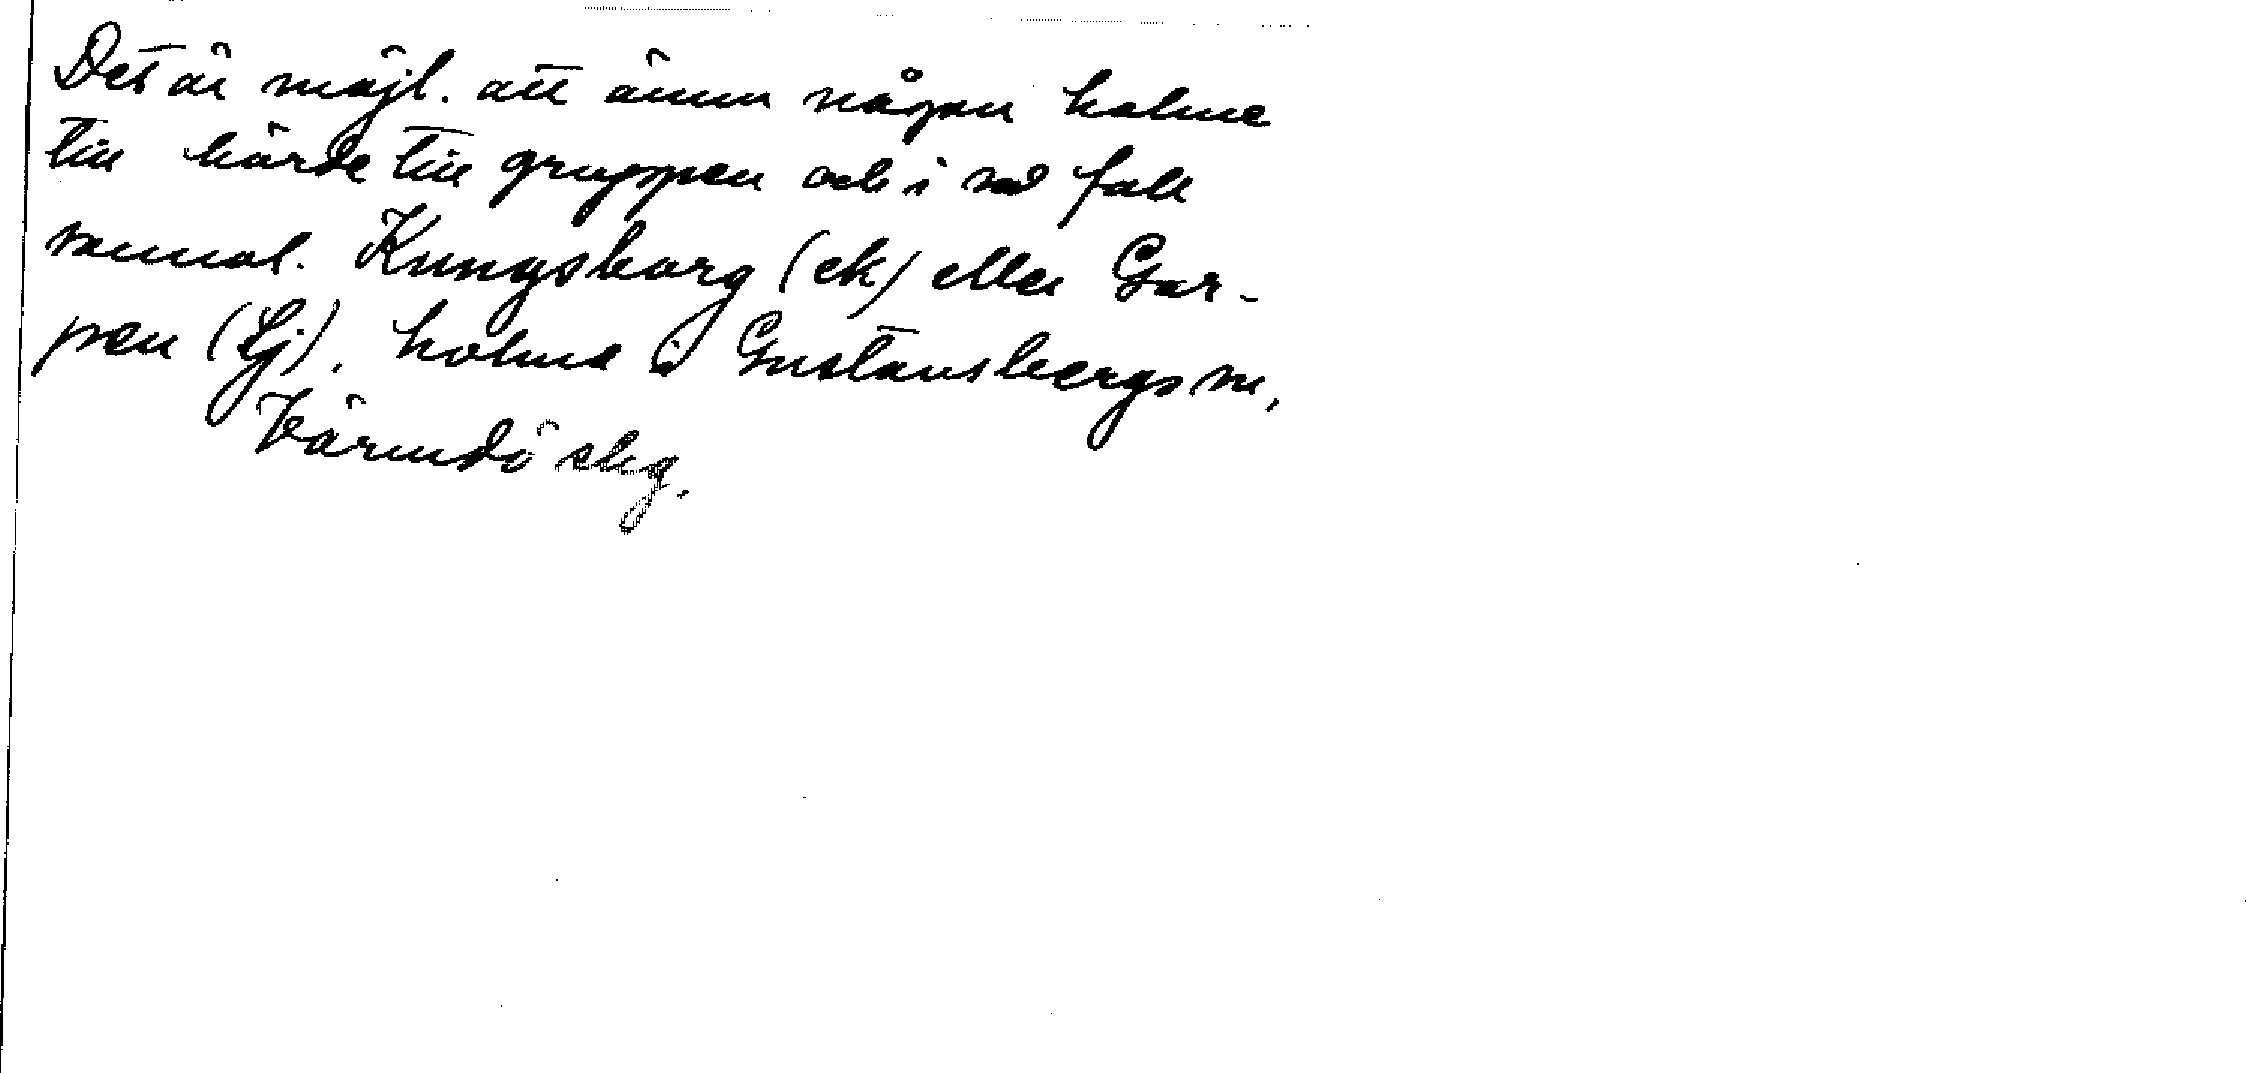 Det är möjl. att ännu någon holme
till hörde till gruppen och i så fall
sannol. Kungsborg (ek) eller Gar-
pen (Lj), holme i Gustavsbergs sn,
Värmdö slg.